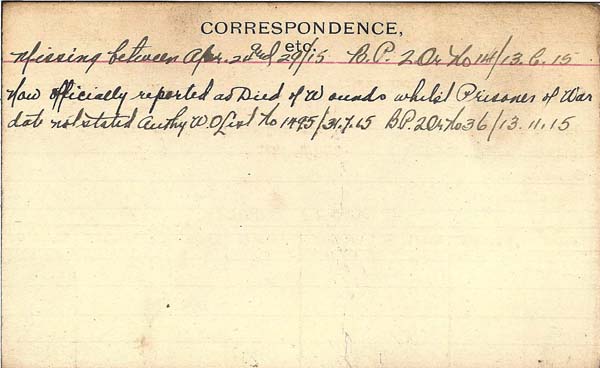 CORRESPONDENCE,
etc.
Missing between Apr. 22nd 29/15 B.P. 2 Or No 14/13.6.15
Now officially reported as Died of Wounds whilst Prisoner of War
date not stated Authy W.O List No 1495/31.7.15 B.P. 2 Or No 36/13.11.15